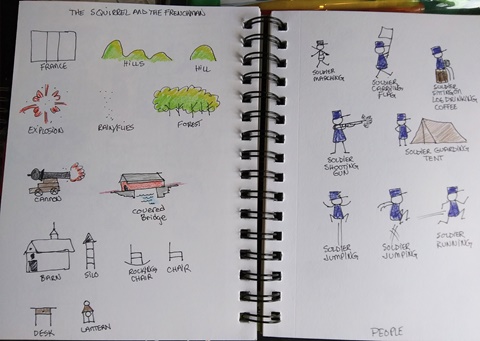 THE SQUIRREL AND THE FRENCHMAN
FRANCE
HILLS
HILL
EXPLOSION
RAIN/FLIES
FOREST
CANNON
COVERED
BRIDGE
BARN
SILO
ROCKING
CHAIR
CHAIR
DESK
LANTERN
SOLDIER
MARCHING
SOLDIER
CARRYING
FLAG
SOLDIER
SITTING ON
LOG DRINKING
COFFEE
SOLDIER
SHOOTING
GUN
SOLDIER GUARDING
TENT
SOLDIER
JUMPING
SOLDIER
JUMPING
SOLDIER
RUNNING
PEOPLE